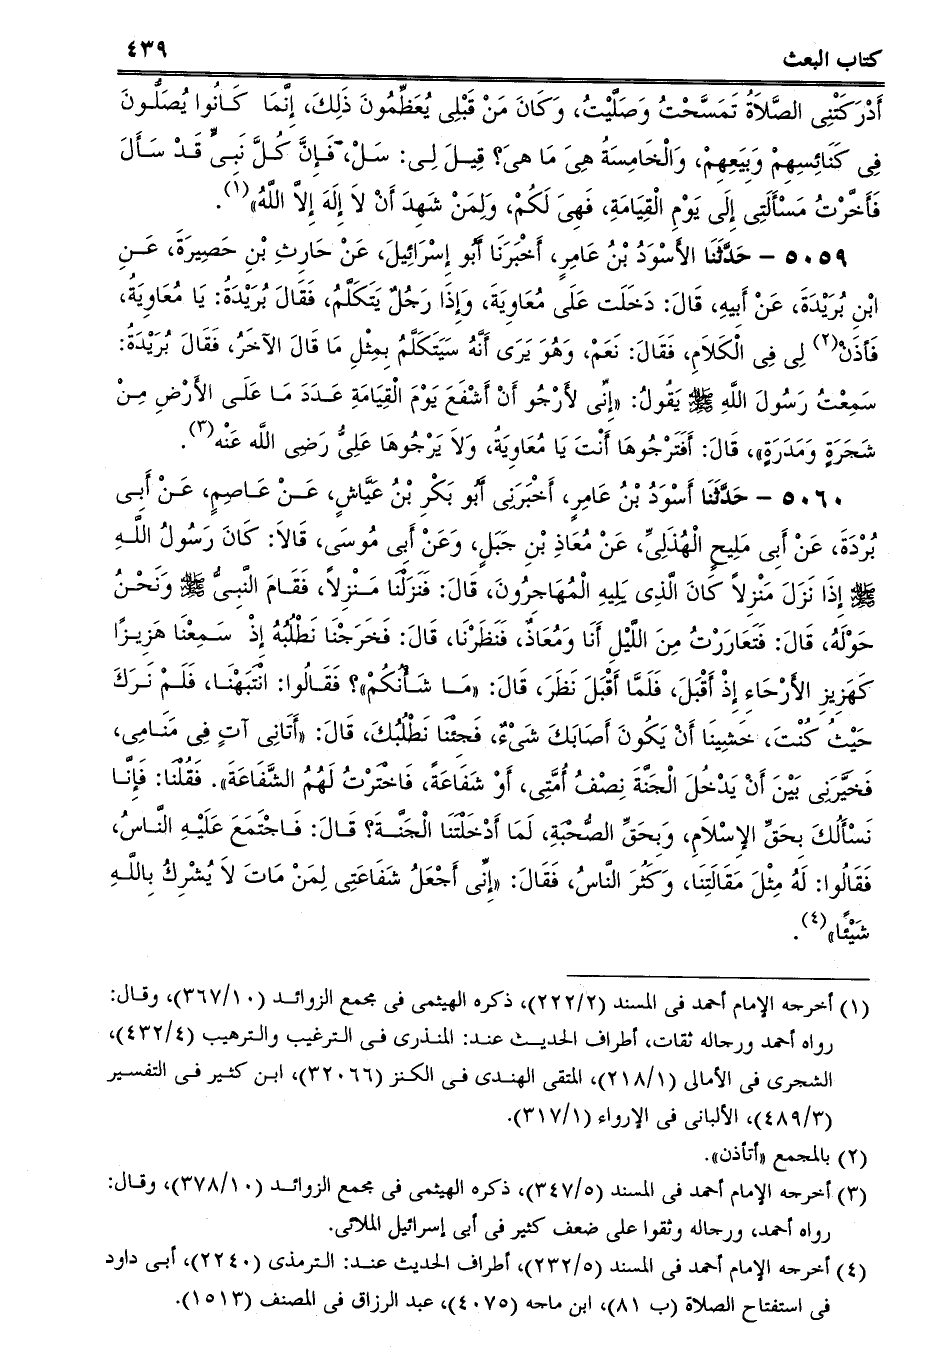 كتاب البعث ٤٣٩
أَدْرَكَتْنِى الصَّلاَةُ تَمَسَّحْتُ وَصَلَّيْتُ، وَكَانَ مَنْ قَبْلِى يُعَظِّمُونَ ذَلِكَ، إِنَّمَا كَانُوا يُصَلُّونَ
فِى كَنَائِسِهِمْ وَبِيَعِهِمْ، وَالْخَامِسَةُ هِىَ مَا هِىَ؟ قِيلَ لِى: سَلْ، فَإِنَّ كُلَّ نَبِىٍّ قَدْ سَأَلَ
فَأَخَّرْتُ مَسْأَلَتِى إِلَى يَوْمِ الْقِيَامَةِ، فَهِىَ لَكُمْ، وَلِمَنْ شَهِدَ أَنْ لاَ إِلَهَ إِلاَّ اللَّهُ»(١).
٥٠٥٩ - حَدَّثَنَا الأَسْوَدُ بْنُ عَامِرٍ، أَخْبَرَنَا أَبُو إِسْرَائِيلَ، عَنْ حَارِثِ بْنِ حَصِيرَةَ، عَنِ
ابْنِ بُرَيْدَةَ، عَنْ أَبِيهِ، قَالَ: دَخَلَت عَلَى مُعَاوِيَةَ، وَإِذَا رَجُلٌ يَتَكَلَّمُ، فَقَالَ بُرَيْدَةُ: يَا مُعَاوِيَةُ،
فَأذَنْ(٢) لِى فِى الْكَلاَمِ، فَقَالَ: نَعَمْ، وَهُوَ يَرَى أَنَّهُ سَيَتَكَلَّمُ بِمِثْلِ مَا قَالَ الآخَرُ، فَقَالَ بُرَيْدَةُ:
سَمِعْتُ رَسُولَ اللَّهِ ﷺ يَقُولُ: «إِنِّى لأَرْجُو أَنْ أَشْفَعَ يَوْمَ الْقِيَامَةِ عَدَدَ مَا عَلَى الأَرْضِ مِنْ
شَجَرَةٍ وَمَدَرَةٍ»، قَالَ: أَفَتَرْجُوهَا أَنْتَ يَا مُعَاوِيَةُ، وَلاَ يَرْجُوهَا عَلِىُّ رَضِى اللَّه عَنْه(٣).
٥٠٦٠ - حَدَّثَنَا أَسْوَدُ بْنُ عَامِرٍ، أَخْبَرَنِى أَبُو بَكْرِ بْنُ عَيَّاشٍ، عَنْ عَاصِمٍ، عَنْ أَبِى
بُرْدَةَ، عَنْ أَبِى مَلِيحٍ الْهُذَلِىِّ، عَنْ مُعَاذِ بْنِ جَبَلٍ، وَعَنْ أَبِى مُوسَى، قَالاَ: كَانَ رَسُولُ اللَّهِ
ﷺ إِذَا نَزَلَ مَنْزِلاً كَانَ الَّذِى يَلِيهِ الْمُهَاجِرُونَ، قَالَ: فَنَزَلْنَا مَنْزِلاً، فَقَامَ النَّبِىُّ ﷺ وَنَحْنُ
حَوْلَهُ، قَالَ: فَتَعَارَرْتُ مِنَ اللَّيْلِ أَنَا وَمُعَاذٌ، فَنَظَرْنَا، قَالَ: فَخَرَجْنَا نَطْلُبُهُ إِذْ سَمِعْنَا هَزِيزًا
كَهَزِيزِ الأَرْحَاءِ إِذْ أَقْبَلَ، فَلَمَّا أَقْبَلَ نَظَرَ، قَالَ: «مَا شَأْنُكُمْ»؟ فَقَالُوا: انْتَبَهْنَا، فَلَمْ نَرَكَ
حَيْثُ كُنْتَ، خَشِينَا أَنْ يَكُونَ أَصَابَكَ شَىْءٌ، فَجِئْنَا نَطْلُبُكَ، قَالَ: «أَتَانِى آتٍ فِى مَنَامِى،
فَخَيَّرَنِى بَيْنَ أَنْ يَدْخُلَ الْجَنَّةَ نِصْفُ أُمَّتِى، أَوْ شَفَاعَةً، فَاخْتَرْتُ لَهُمُ الشَّفَاعَةَ». فَقُلْنَا: فَإِنَّا
نَسْأَلُكَ بِحَقِّ الإِسْلاَمِ، وَبِحَقِّ الصُّحْبَةِ، لَمَا أَدْخَلْتَنَا الْجَنَّةَ؟ قَالَ: فَاجْتَمَعَ عَلَيْهِ النَّاسُ،
فَقَالُوا: لَهُ مِثْلَ مَقَالَتِنَا، وَكَثُرَ النَّاسُ، فَقَالَ: «إِنِّى أَجْعَلُ شَفَاعَتِى لِمَنْ مَاتَ لاَ يُشْرِكُ بِاللَّهِ
شَيْئًا»(٤).
(١) أخرجه الإمام أحمد فى المسند (٢٢٢/٢)، ذكره الهيثمى فى مجمع الزوائد (٣٦٧/١٠)، وقال:
رواه أحمد ورحاله ثقات، أطراف الحديث عند: المنذرى فى الترغيب والترهيب (٤٣٢/٤)،
الشجرى فى الأمالى (٢١٨/١)، المتقى الهندى فى الكنز (٣٢٠٦٦)، ابن كثير فى التفسير
(٤٨٩/٣)، الألبانى فى الإرواء (٣١٧/١).
(٢) بالمجمع «أتأذن».
(٣) أخرجه الإمام أحمد فى المسند (٣٤٧/٥)، ذكره الهيثمى فى مجمع الزوائد (٣٧٨/١٠)، وقال:
رواه أحمد، ورحاله وثقوا على ضعف كثير فى أبى إسرائيل الملائى.
(٤) أخرجه الإمام أحمد فى المسند (٢٣٢/٥)، أطراف الحديث عند: الترمذى (٢٢٤٠)، أبى داود
فى استفتاح الصلاة (ب ٨١)، ابن ماجه (٤٠٧٥)، عبد الرزاق فى المصنف (١٥١٣).